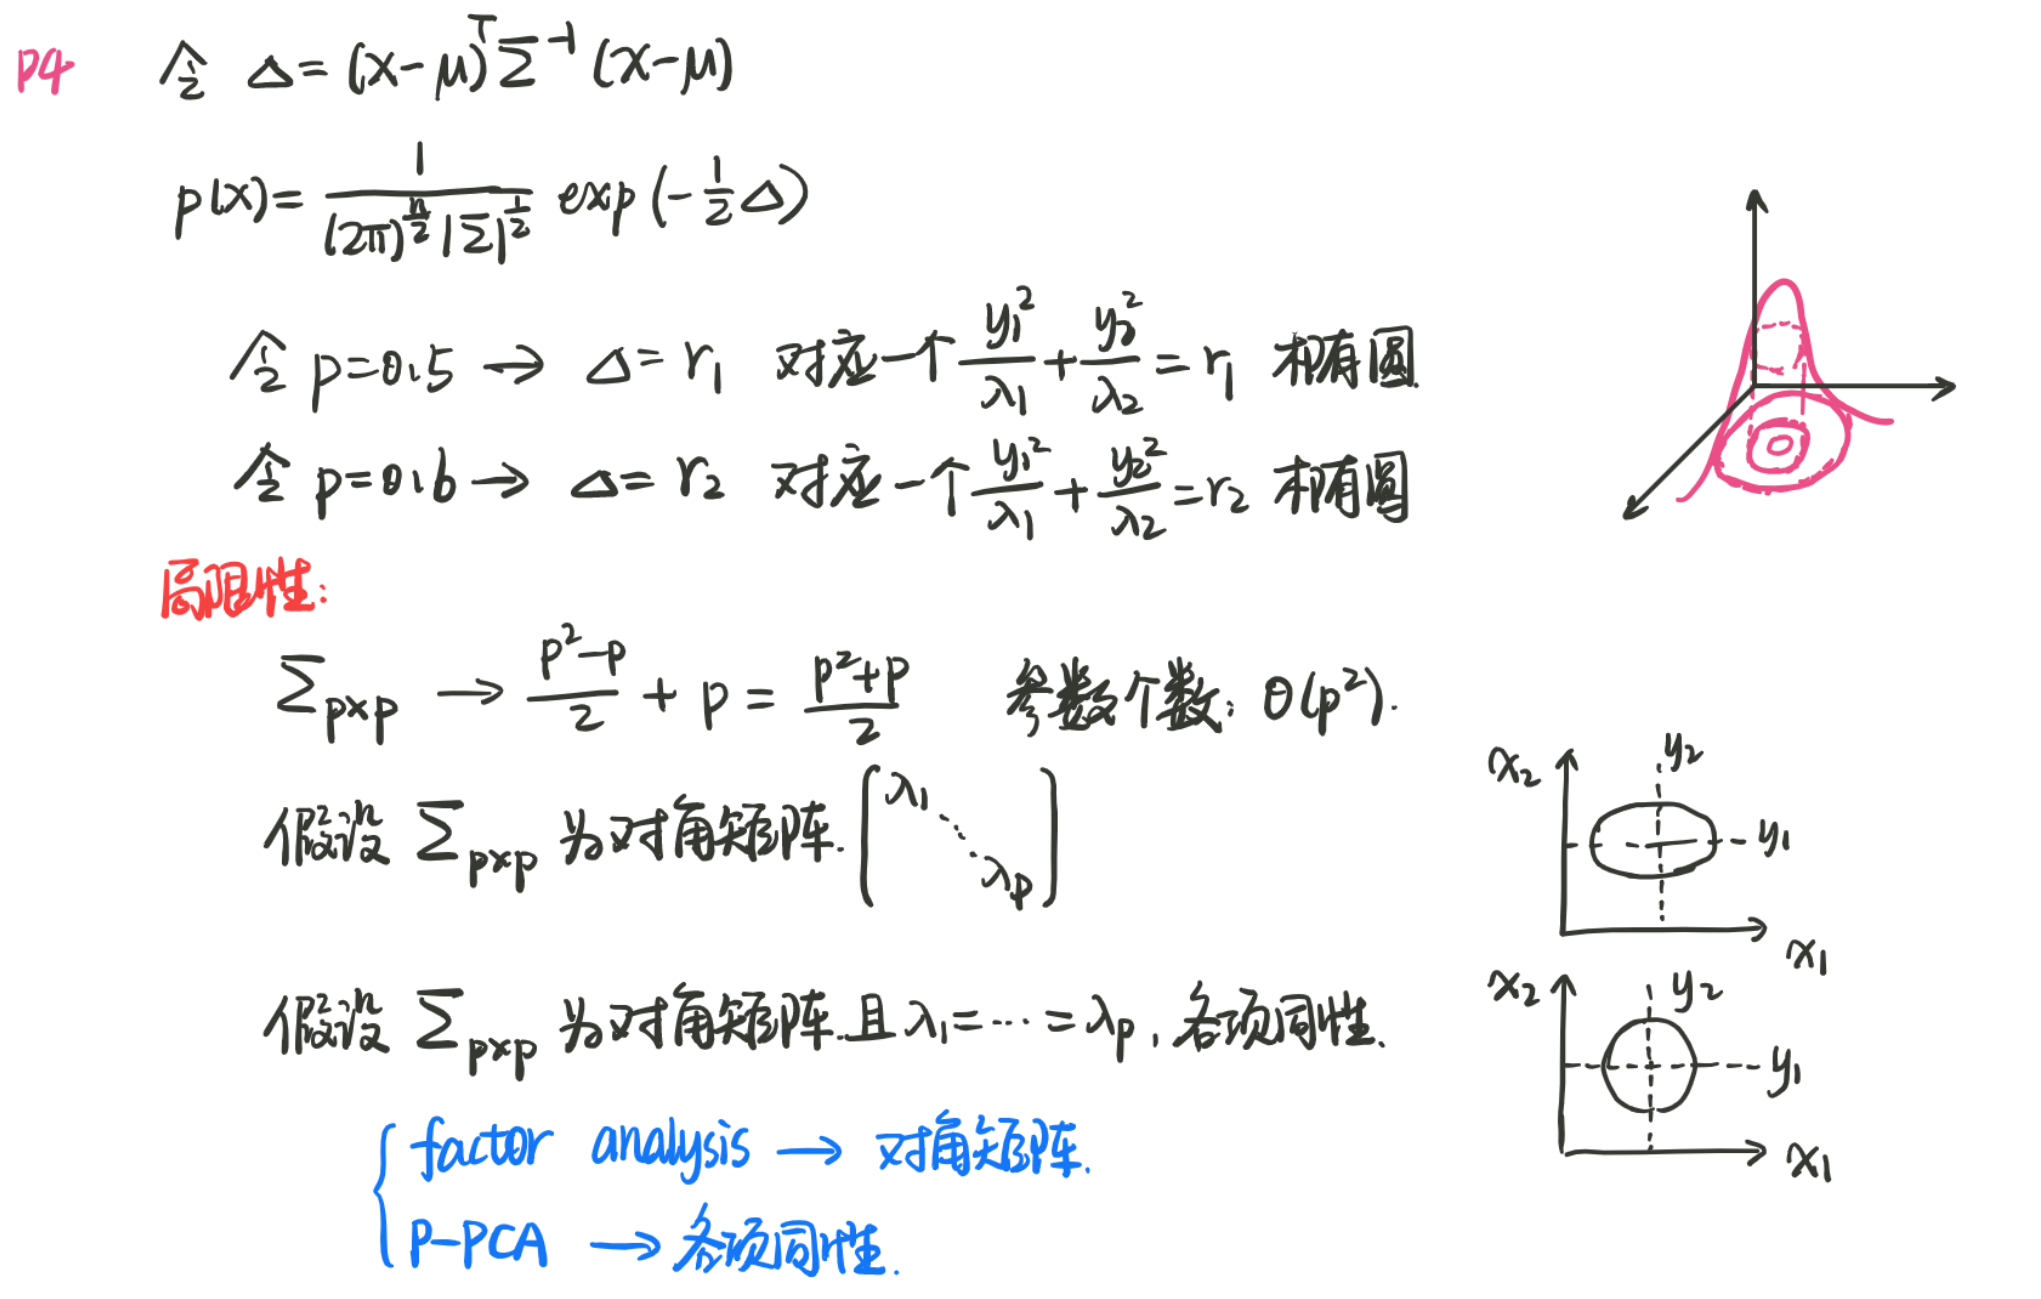 P4
令 Δ = (x-μ)ᵀ Σ⁻¹ (x-μ)
p(x) = 1 / ((2π)^(n/2) |Σ|^(1/2)) exp(-1/2 Δ)
令 p=0.5 → Δ = r₁ 对应一个 y₁²/λ₁ + y₂²/λ₂ = r₁ 椭圆.
令 p=0.6 → Δ = r₂ 对应一个 y₁²/λ₁ + y₂²/λ₂ = r₂ 椭圆
局限性:
Σ_{p×p} → (p²-p)/2 + p = (p²+p)/2 参数个数: O(p²).
x₂ y₂
假设 Σ_{p×p} 为对角矩阵. [λ₁ ⋱ λp]
y₁
x₁
假设 Σ_{p×p} 为对角矩阵.且 λ₁=…=λp, 各项同性.
x₂ y₂
y₁
x₁
factor analysis → 对角矩阵.
P-PCA → 各项同性.